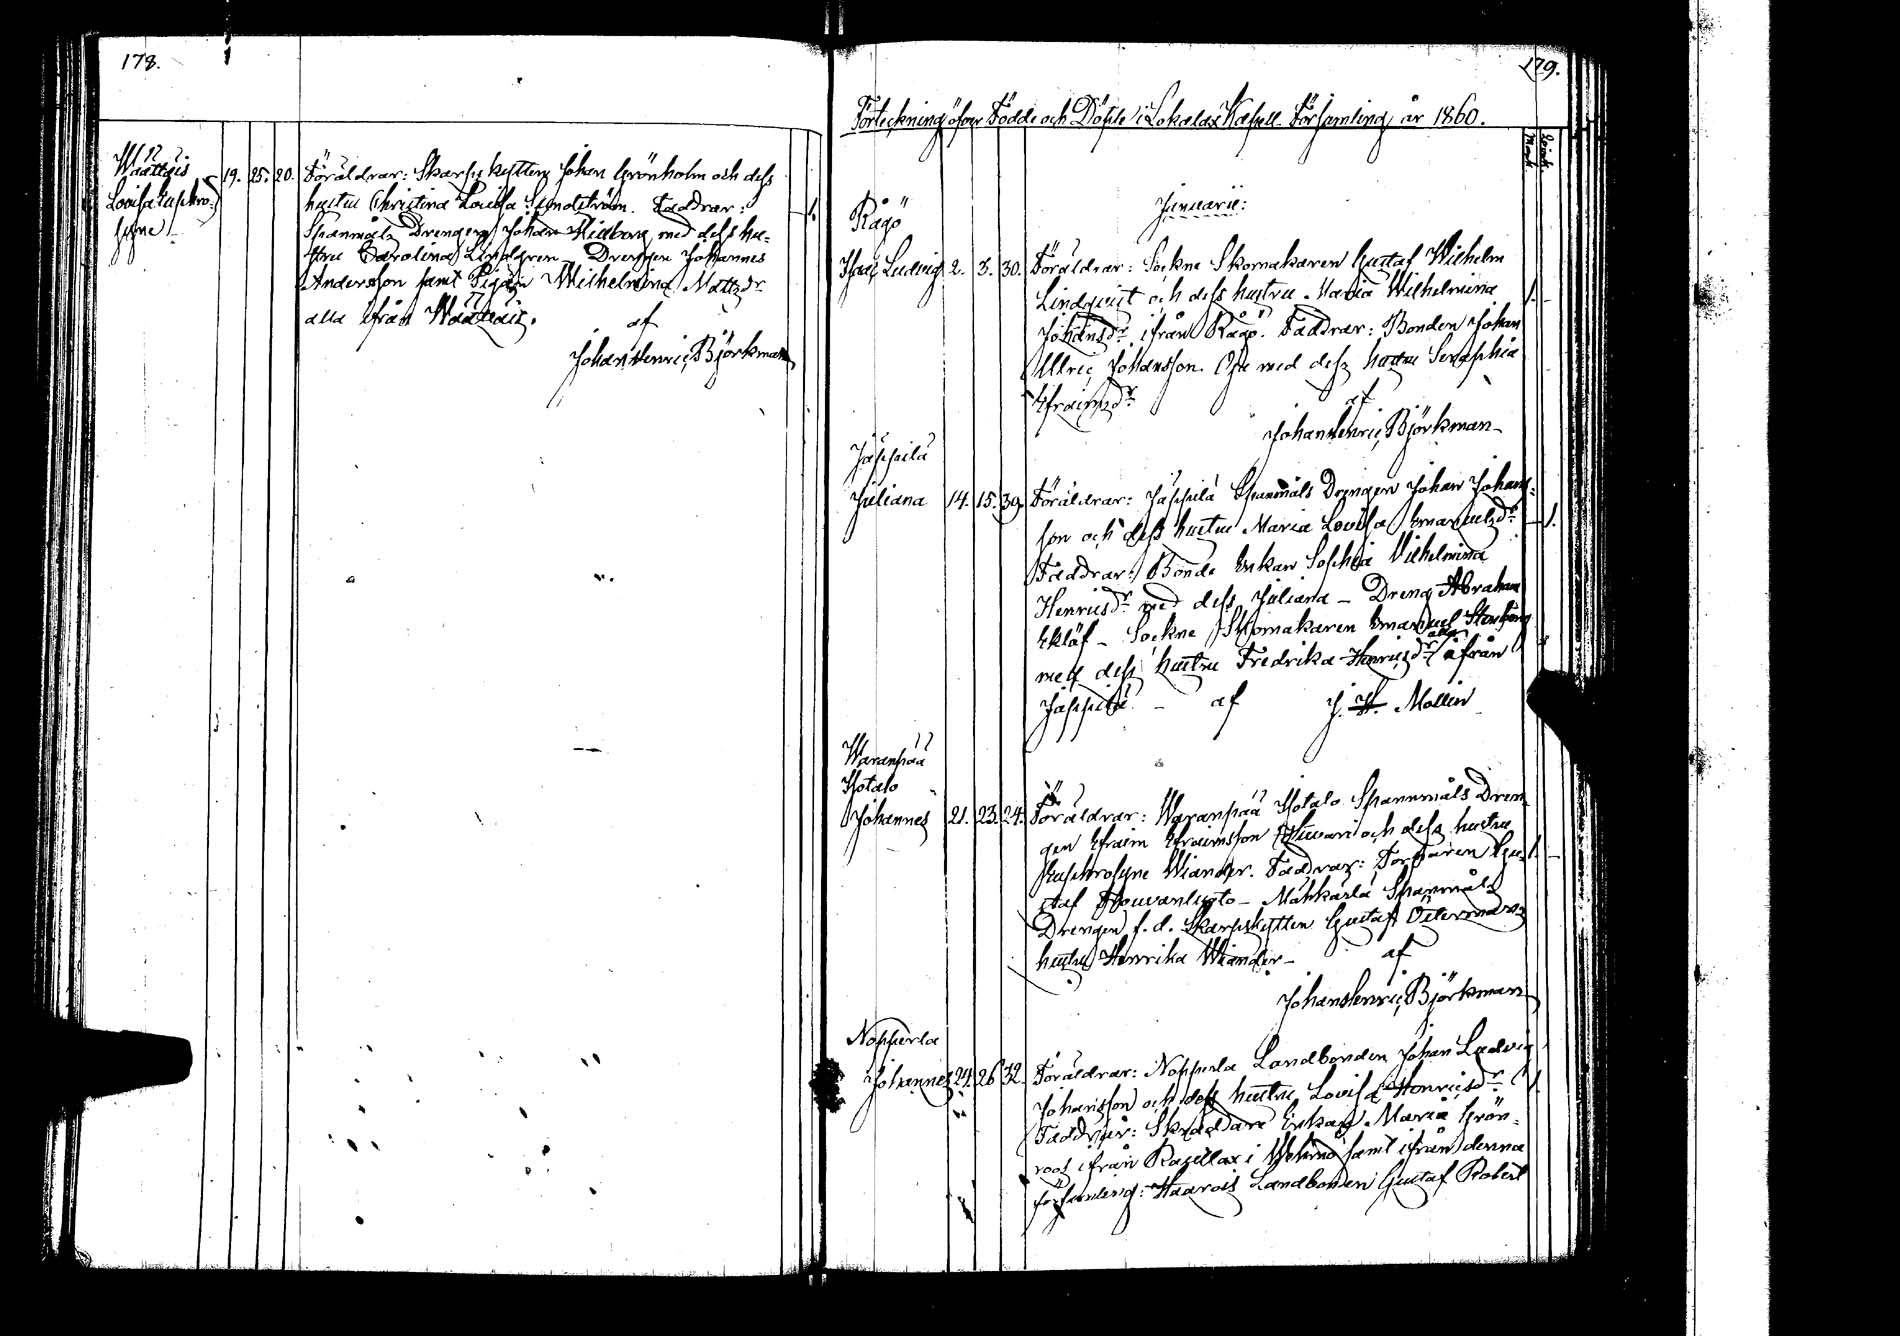 178.
Waattois
Lovisa Euphro=
syne
19. 25. 20. Föräldrar: Skarpskytten Johan Grönholm och dess
hustru Christina Lovisa Sundström. Faddrar:
Spanmåls Drengen Johan Widborg med dess hu=
stru Carolina Lindgren, Drengen Johannes
Andersson samt Pigan Wilhelmina Mattsdr
alla ifrån Waattois.
af
Johan Henric Björkman
1.
179.
Förteckning öfver Födde och Döpte i Lokalax Kapell-Församling år 1860.
Qvink.
Mank.
Januarii:
Rågö
Isaac Ludvig 2. 3. 30. Föräldrar: Sockne Skomakaren Gustaf Wilhelm
Lindqvist och dess hustru Maria Wilhelmina 1. –
Johansdr ifrån Rågö. Faddrar: Bonden Johan
Ulric Johansson med dess hustru Seraphia
Efraimsdr
af
Johan Henric Björkman
Jäppilä
Juliana 14. 15. 39. Föräldrar: Jäppilä Spanmåls Drengen Johan Johans=
son och dess hustru Maria Lovisa Emanuelsdr – 1.
Faddrar: Bonde Enkan Sophia Vilhelmina
Henricsdr med dess Juliana – Dreng Abraham
Eklöf – Sockne Skomakaren Emanuel
med dess hustru Fredrika Henricsdr alla ifrån
Jäppilä – af J. H. Mollin
Waranpää
Hotalo
Johannes 21. 23. 24. Föräldrar: Waranpää Hotalo Spannmåls Dren=
gen Efraim Efraimsson och dess hustru
Euphrosyne Wiander. Faddrar: Torparen Gu= 1. –
staf – Mähkärlä Spanmåls
Drengen f.d. Skarpskytten Gustaf Östermans
hustru Henrika Wiander – af
Johan Henric Björkman
Nopperla
Johannes 24. 26 32. Föräldrar: Nopperla Landbonden Johan Ludvig
Johansson och dess hustru Lovisa Henricsdr 1.
Faddrar: Skräddare Enkan Maria Grön=
roos ifrån i Wehmo samt ifrån denna
församling: Haarois Landbonden Gustaf Robert